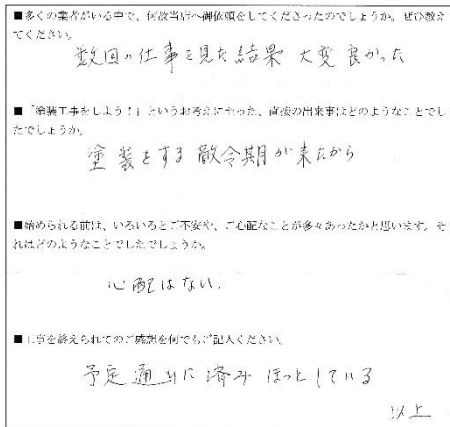 ■多くの業者がいる中で、何故当店へ御依頼をしてくださったのでしょうか。ぜひ教え
てください。
数回の仕事を見た結果 大変良かった
■「塗装工事をしよう！」というお考えにやった、直接の出来事はどのようなことでし
たでしょうか。
塗装をする 期が来たから
■始められる前は、いろいろとご不安や、ご心配なことが多々あったかと思います。そ
れはどのようなことでしたでしょうか。
心配はない.
■工事を終えられてのご感想を何でもご記入ください。
予定通りに済みほっとしている
以上